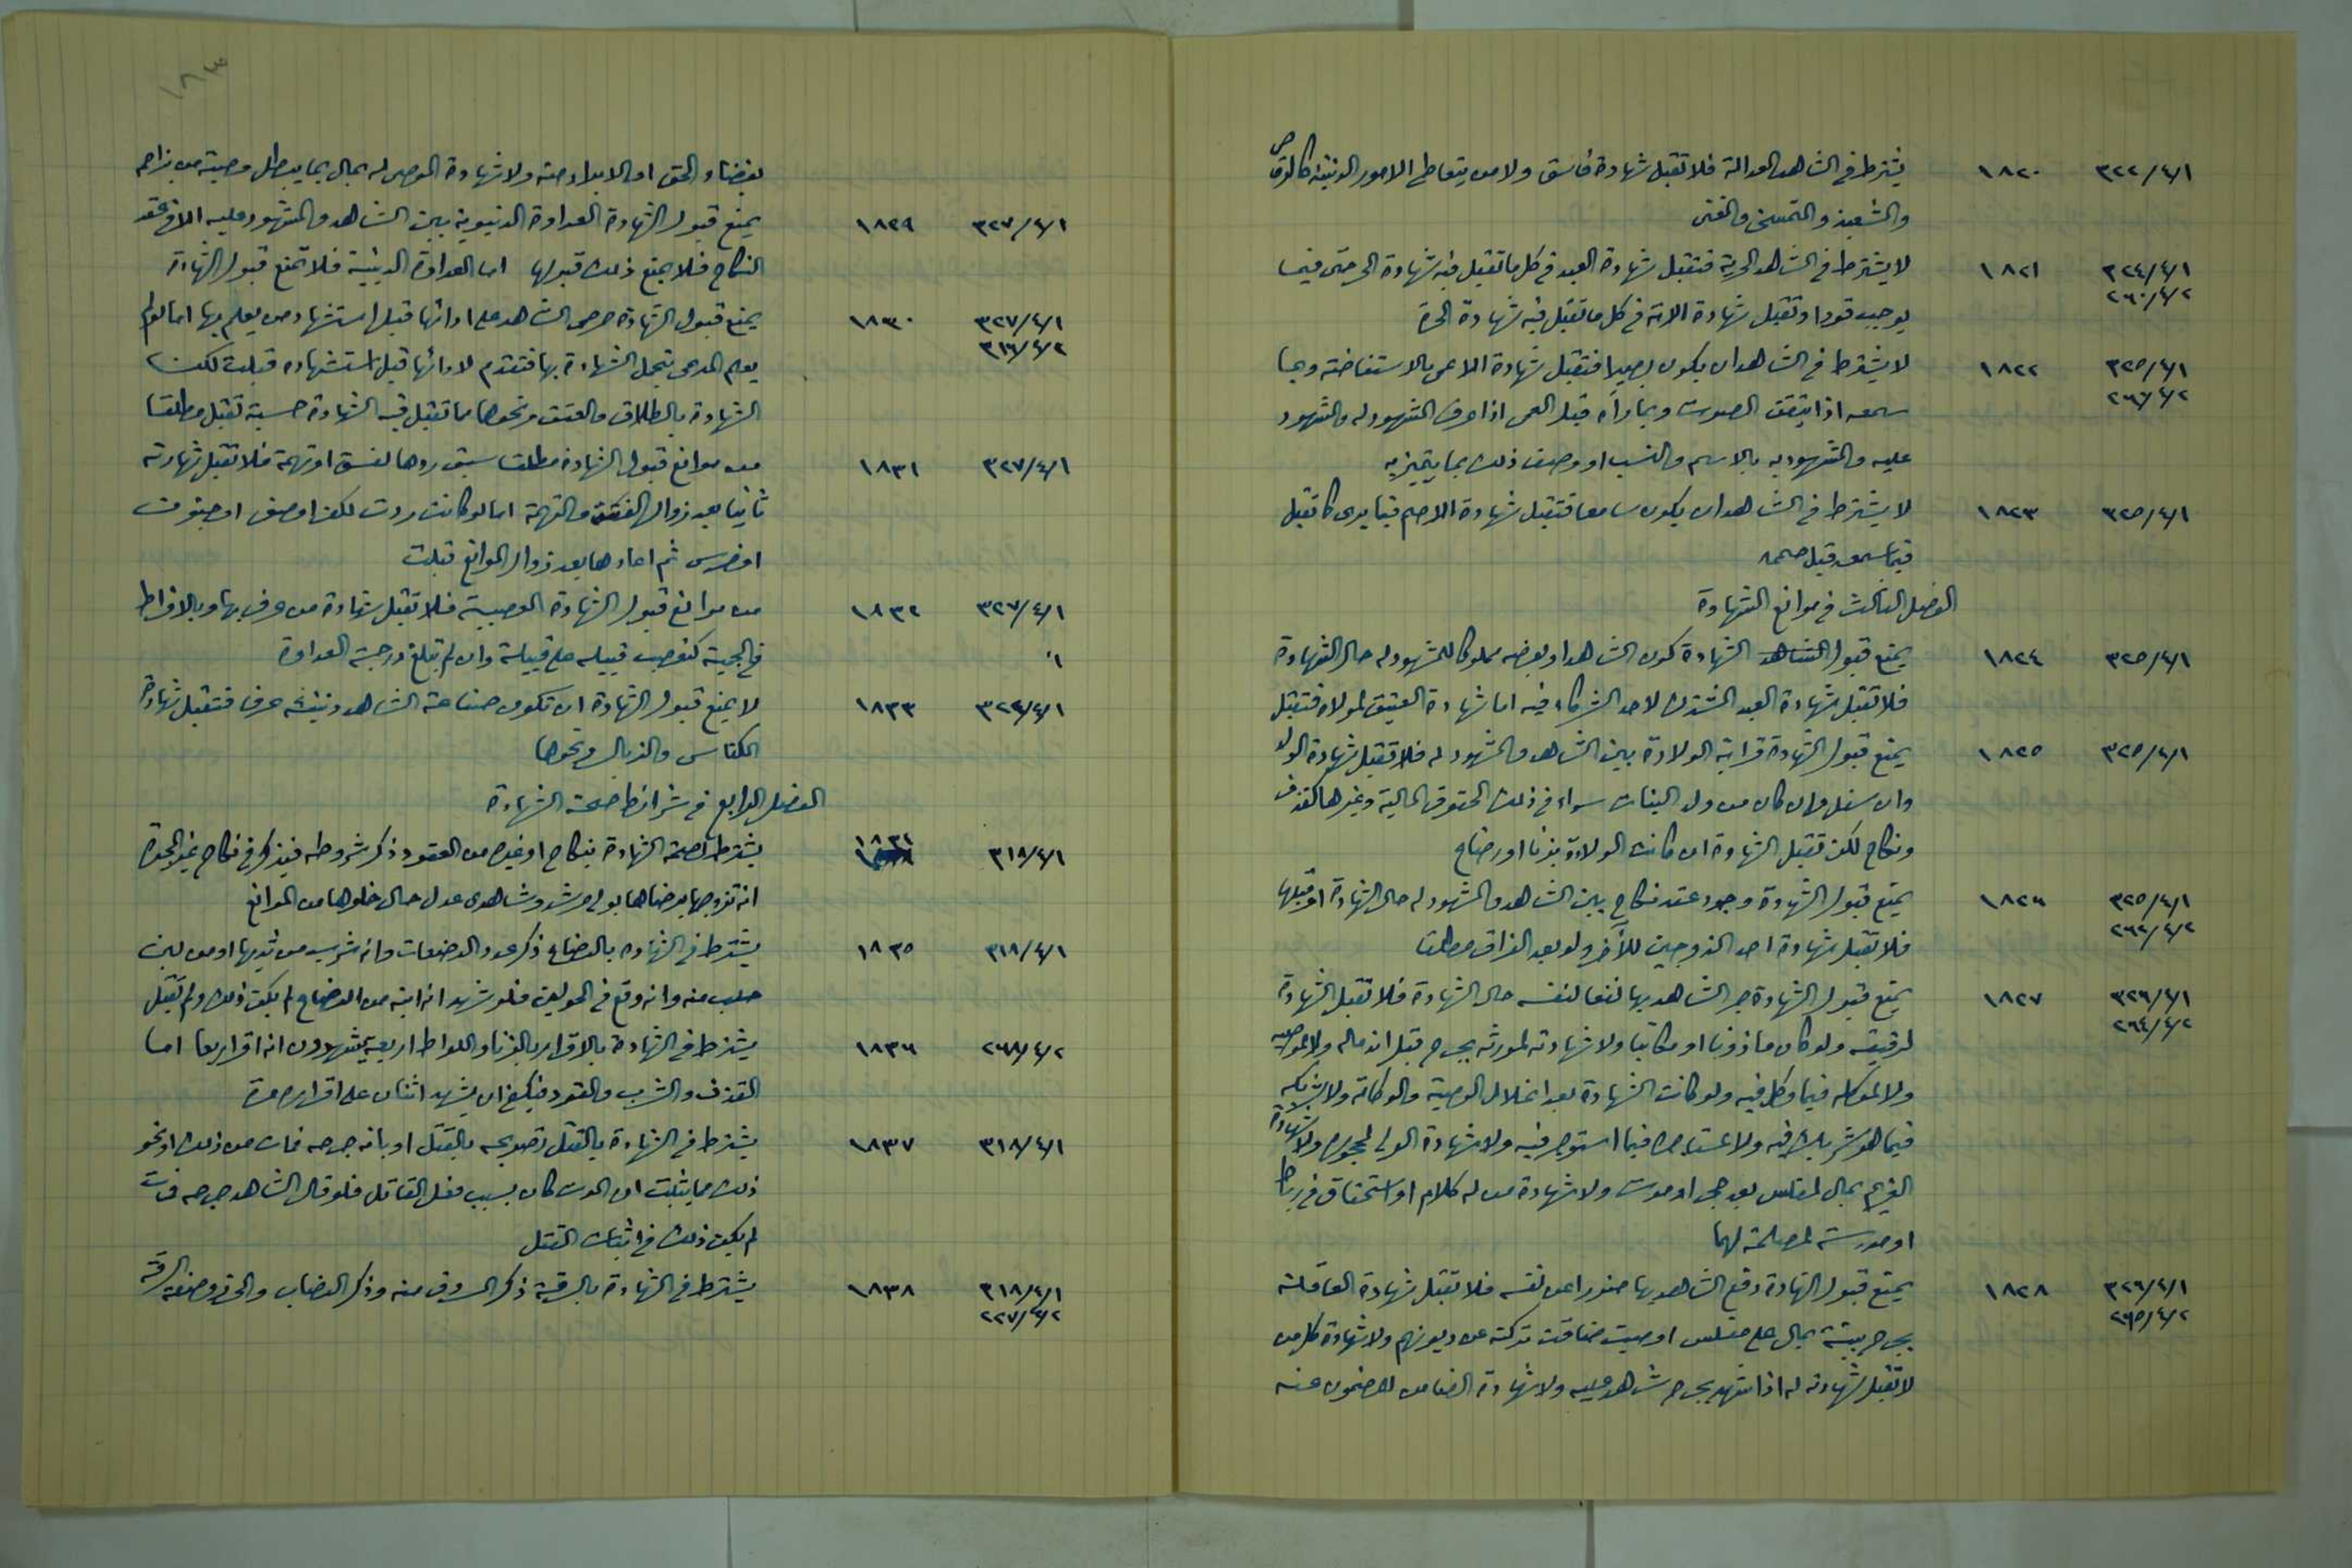 ٣٢٢/٤/١ ١٨٢٠ يشترط في الشاهد العدالة فلا تقبل شهادة فاسق ولا من يتعاطى الامور الدنيئة كالرقاص
والشعبذ والتمسخر والمغنى
٣٢٤/٤/١ ١٨٢١ لا يشترط في الشاهد الحرية فتقبل شهادة العبد في كل ما تقبل فيه شهادة الحر حتى فيما
٢٦٠/٤/٢ يوجب قودا وتقبل شهادة الامة في كل ما تقبل فيه شهادة الحرة
٣٢٥/٤/١ ١٨٢٢ لا يشترط في الشاهد ان يكون بصيرا فتقبل شهادة الاعمى بالاستفاضة وبما
٢٦١/٤/٢ سمعه اذا تيقن الصوت وبما رآه قبل العمى اذا عرف المشهود له والمشهود
عليه والمشهود به بالاسم والنسب او وصف ذلك بما يتميز به
٣٢٥/٤/١ ١٨٢٣ لا يشترط في الشاهد ان يكون سامعا فتقبل شهادة الاصم فيما يرى كما تقبل
فيما سمعه قبل صممه
الفصل الثالث في موانع الشهادة
٣٢٥/٤/١ ١٨٢٤ يمنع قبول الشاهد الشهادة كون الشاهد او بعضه مملوكا للمشهود له حال الشهادة
فلا تقبل شهادة العبد المشترك لاحد الشركاء فيه اما شهادة العتيق لمولاه فتقبل
٣٢٥/٤/١ ١٨٢٥ يمنع قبول الشهادة قرابة الولادة بين الشاهد والمشهود له فلا تقبل شهادة الولد
وان سفل وان كان من ولد البنات سواء في ذلك الحقوق المالية وغيرها كقذف
ونكاح لكن تقبل الشهادة ان كانت الولادة بزنا او رضاع
٣٢٥/٤/١ ١٨٢٦ يمنع قبول الشهادة وجود عقد نكاح بين الشاهد والمشهود له حال الشهادة او قبلها
٢٦٢/٤/٢ فلا تقبل شهادة احد الزوجين للآخر ولو بعد الفراق مطلقا
٣٢٦/٤/١ ١٨٢٧ يمنع قبول الشهادة جر الشاهد بها نفعا لنفسه حال الشهادة فلا تقبل الشهادة
٢٦٤/٤/٢ لرقيقه ولو كان مأذونا او مكاتبا ولا شهادته لمورثه بجرح قبل اندماله ولا لموصيه
ولا لموكله فيما وكل فيه ولو كانت الشهادة بعد انحلال الوصية والوكالة ولا لشريكه
فيما هو شريك فيه ولا لمستأجره فيما استؤجر فيه ولا شهادة الولي لمحجوره ولا شهادة
الغريم بمال لمفلس بعد حجر او موت ولا شهادة من له كلام او استحقاق في رباط
او مدرسة لمصلحة لهما
٣٢٦/٤/١ ١٨٢٨ يمنع قبول الشهادة دفع الشاهد بها ضررا عن نفسه فلا تقبل شهادة العاقلة
٢٦٥/٤/٢ بجرح بينة بمال على مفلس او ميت ضاقت تركته عن ديونهم ولا شهادة كل من
لا تقبل شهادته له اذا شهد بجرح شاهد عليه ولا شهادة الضامن للمضمون عنه
١٨٣
بقضاء الحق او الابراء منه ولا شهادة الموصى له بمال بما يبطل وصية من يزاحمه
٣٢٧/٤/١ ١٨٢٩ يمنع قبول الشهادة العداوة الدنيوية بين الشاهد والمشهود عليه الا في عقد
النكاح فلا يمنع ذلك قبولها اما العداوة الدينية فلا تمنع قبول الشهادة
٣٢٧/٤/١ ١٨٣٠ يمنع قبول الشهادة حرص الشاهد على ادائها قبل استشهاد من يعلم بها اما لو لم
٣١٦/٤/٢ يعلم المدعى بتحمل الشهادة بها فتقدم لادائها قبل استشهاده قبلت لكن
الشهادة بالطلاق والعتق ونحوها مما تقبل فيه الشهادة حسبة تقبل مطلقا
٣٢٧/٤/١ ١٨٣١ من موانع قبول الشهادة مطلقا سبق ردها لفسق او تهمة فلا تقبل شهادته
ثانيا بعد زوال الفسق والتهمة اما لو كانت ردت لكفر او صغر او جنون
او خرس ثم اعادها بعد زوال الموانع قبلت
٣٢٧/٤/١ ١٨٣٢ من موانع قبول الشهادة العصبية فلا تقبل شهادة من عرف بها وبالافراط
في الحمية كتعصب قبيلة على قبيلة وان لم تبلغ درجة العداوة
٣٢٤/٤/١ ١٨٣٣ لا يمنع قبول الشهادة ان تكون صناعة الشاهد دنيئة عرفا فتقبل شهادة
الكناس والزبال ونحوها
الفصل الرابع في شرائط صحة الشهادة
٣١٨/٤/١ ١٨٣٤ يشترط لصحة الشهادة بنكاح او غيره من العقود ذكر شروطه فيذكر في نكاح غير المجبرة
انه تزوجها برضاها بولي مرشد وشاهدى عدل حال خلوها من الموانع
٣١٨/٤/١ ١٨٣٥ يشترط في الشهادة بالرضاع ذكر عدد الرضعات وانه شرب من ثديها او من لبن
حلب منه وانه وقع في الحولين فلو شهد انه ابنه من الرضاع لم يكف ذلك ولم تقبل
٢٦٨/٤/٢ ١٨٣٦ يشترط في الشهادة بالاقرار بالزنا واللواط اربعة يشهدون انه اقر اربعا اما
القذف والشرب والقود فيكفي ان يشهد اثنان على اقراره مرة
٣١٨/٤/١ ١٨٣٧ يشترط في الشهادة بالقتل تصريحه بالقتل او بانه جرحه فمات من ذلك او نحو
ذلك مما يثبت ان الموت كان بسبب فعل القاتل فلو قال الشاهد جرحه فمات
لم يكف ذلك في اثبات القتل
٣١٨/٤/١ ١٨٣٨ يشترط في الشهادة بالسرقة ذكر المسروق منه وذكر النصاب والحرز وصفة السرقة
٢٢٧/٤/٢